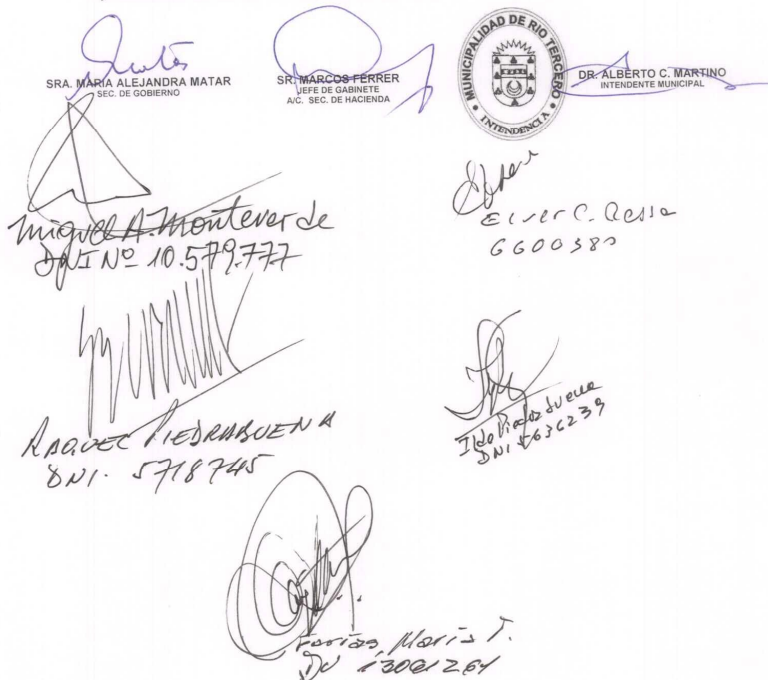 SRA. MARIA ALEJANDRA MATAR
SEC. DE GOBIERNO
SR. MARCOS FERRER
JEFE DE GABINETE
A/C. SEC. DE HACIENDA
MUNICIPALIDAD DE RIO TERCERO
INTENDENCIA
DR. ALBERTO C. MARTINO
INTENDENTE MUNICIPAL
Miguel A. Monteverde
DNI Nº 10.579.777
Elver C.
RAQUEL PIEDRABUENA
DNI. 5718745
Ildo Piedrabuena
DNI 5636239
Farías, María T.